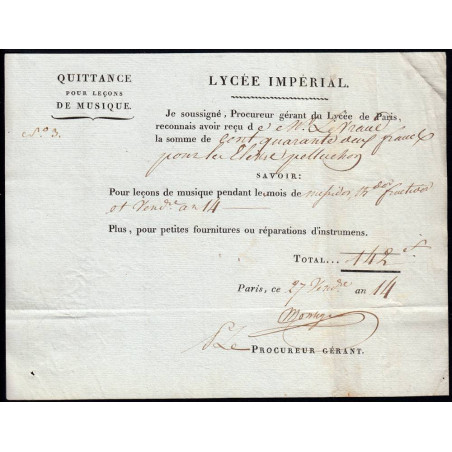 QUITTANCE
POUR LEÇONS
DE MUSIQUE.
N.o 3.
LYCÉE IMPÉRIAL.
Je soussigné, Procureur gérant du Lycée de Paris,
reconnais avoir reçu de Mr.
la somme de Cent quarante deux francs
pour les Elève pelluchon
SAVOIR:
Pour leçons de musique pendant le mois de messidor, th.dor fructidor
et Vend.re an 14
Plus, pour petites fournitures ou réparations d'instrumens.
TOTAL... 142 f.
Paris, ce 27 Vend.re an 14
PROCUREUR GÉRANT.